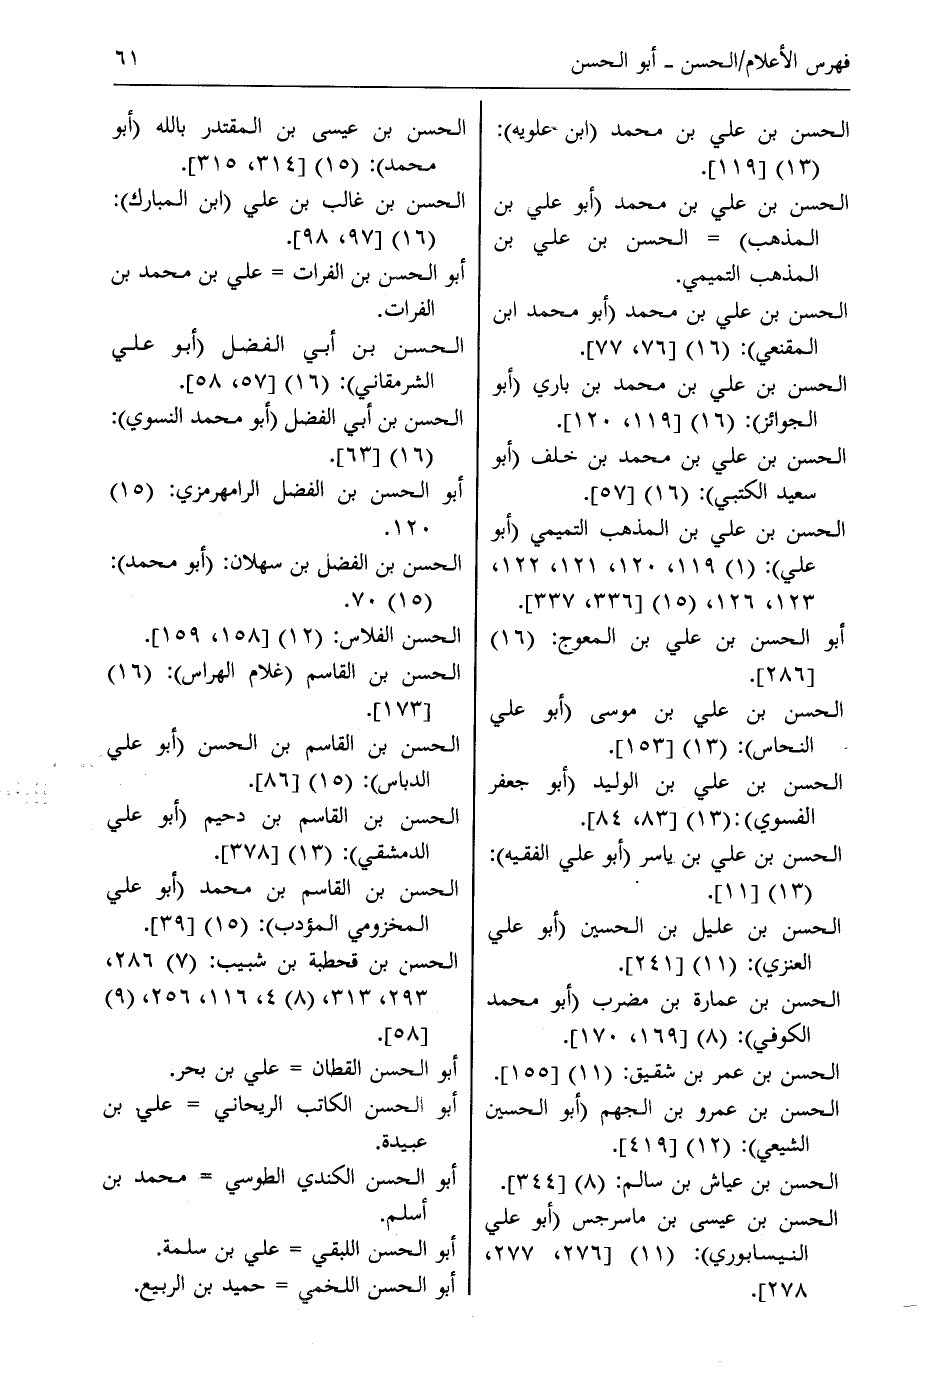 فهرس الأعلام/الحسن ـ أبو الحسن
٦١
الحسن بن علي بن محمد (ابن علويه):
(١٣) [١١٩].
الحسن بن علي بن محمد (أبو علي بن
المذهب) = الحسن بن علي بن
المذهب التميمي.
الحسن بن علي بن محمد (أبو محمد ابن
المقنعي): (١٦) [٧٦، ٧٧].
الحسن بن علي بن محمد بن باري (أبو
الجوائز): (١٦) [١١٩، ١٢٠].
الحسن بن علي بن محمد بن خلف (أبو
سعيد الكتبي): (١٦) [٥٧].
الحسن بن علي بن المذهب التميمي (أبو
علي): (١) ١١٩، ١٢٠، ١٢١، ١٢٢،
١٢٣، ١٢٦، (١٥) [٣٣٦، ٣٣٧].
أبو الحسن بن علي بن المعوج: (١٦)
[٢٨٦].
الحسن بن علي بن موسى (أبو علي
النحاس): (١٣) [١٥٣].
الحسن بن علي بن الوليد (أبو جعفر
الفسوي):(١٣) [٨٣، ٨٤].
الحسن بن علي بن ياسر (أبو علي الفقيه):
(١٣) [١١].
الحسن بن عليل بن الحسين (أبو علي
العنزي): (١١) [٢٤١].
الحسن بن عمارة بن مضرب (أبو محمد
الكوفي): (٨) [١٦٩، ١٧٠].
الحسن بن عمر بن شقيق: (١١) [١٥٥].
الحسن بن عمرو بن الجهم (أبو الحسين
الشيعي): (١٢) [٤١٩].
الحسن بن عياش بن سالم: (٨) [٣٤٤].
الحسن بن عيسى بن ماسرجس (أبو علي
النيسابوري): (١١) [٢٧٦، ٢٧٧،
٢٧٨].
الحسن بن عيسى بن المقتدر بالله (أبو
محمد): (١٥) [٣١٤، ٣١٥].
الحسن بن غالب بن علي (ابن المبارك):
(١٦) [٩٧، ٩٨].
أبو الحسن بن الفرات = علي بن محمد بن
الفرات.
الحسن بن أبي الفضل (أبو علي
الشرمقاني): (١٦) [٥٧، ٥٨].
الحسن بن أبي الفضل (أبو محمد النسوي):
(١٦) [٦٣].
أبو الحسن بن الفضل الرامهرمزي: (١٥)
١٢٠.
الحسن بن الفضل بن سهلان: (أبو محمد):
(١٥) ٧٠.
الحسن الفلاس: (١٢) [١٥٨، ١٥٩].
الحسن بن القاسم (غلام الهراس): (١٦)
[١٧٣].
الحسن بن القاسم بن الحسن (أبو علي
الدباس): (١٥) [٨٦].
الحسن بن القاسم بن دحيم (أبو علي
الدمشقي): (١٣) [٣٧٨].
الحسن بن القاسم بن محمد (أبو علي
المخزومي المؤدب): (١٥) [٣٩].
الحسن بن قحطبة بن شبيب: (٧) ٢٨٦،
٢٩٣، ٣١٣، (٨) ٤، ١١٦، ٢٥٦، (٩)
[٥٨].
أبو الحسن القطان = علي بن بحر.
أبو الحسن الكاتب الريحاني = علي بن
عبيدة.
أبو الحسن الكندي الطوسي = محمد بن
أسلم.
أبو الحسن اللبقي = علي بن سلمة.
أبو الحسن اللخمي = حميد بن الربيع.